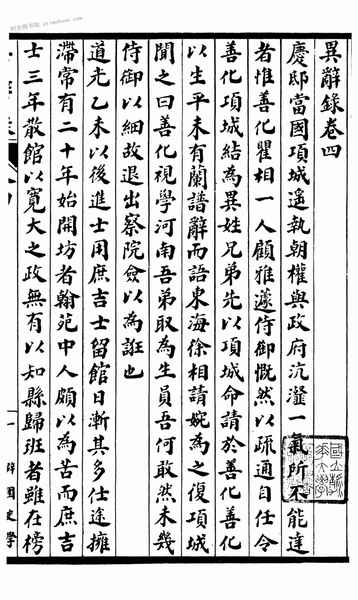 異辭錄卷四
慶邸當國項城遙執朝權與政府沆瀣一氣所不能達
者惟善化瞿相一人顧雅蘧侍御慨然以疏通自任令
善化項城結為異姓兄弟先以項城命請於善化善化
以生平未有蘭譜辭而語東海徐相請婉為之復項城
聞之曰善化視學河南吾弟取為生員吾何敢然未幾
侍御以細故退出察院僉以為誑也
道光乙未以後進士用庶吉士留館日漸其多仕途擁
滯常有二十年始開坊者翰苑中人頗以為苦而庶吉
士三年散館以寬大之政無有以知縣歸班者雖在榜
一
辟園史學